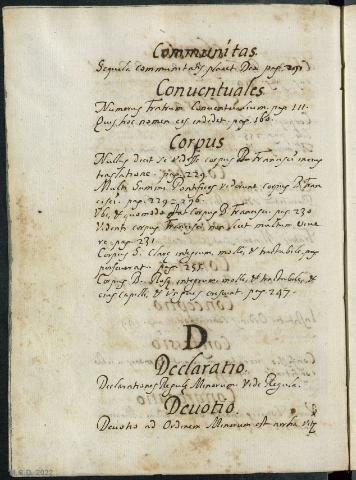 Communitas
Sequela communitatis placet Deo pag. 291
Conventuales
Numerus Fratrum Conventualium. pag. 111.
Quis hoc nomen eis indidit. pag. 160.
Corpus
Nullus dicit se vidisse corpus B. Francisci in eius
traslatione. pag. 229.
Multi Summi Pontifices viderunt corpus B. Fran
cisci. pag. 229. 296.
Ubi, & quomodo stat Corpus B. Francisci. pag. 230
Videnti corpus Francisci non licet multum vive
re pag. 231.
Corpus S. Clare integrum, molle, & tractabile
perseverat. pag. 251.
Corpus B. Rosę integrum molle, & tractabile, &
eius capilli, & crescunt. pag. 247.
D.
Declaratio.
Declarationes Regulę Minorum. Vide Regula.
Devotio.
Devotio ad Ordinem Minorum est
R.D. 2022